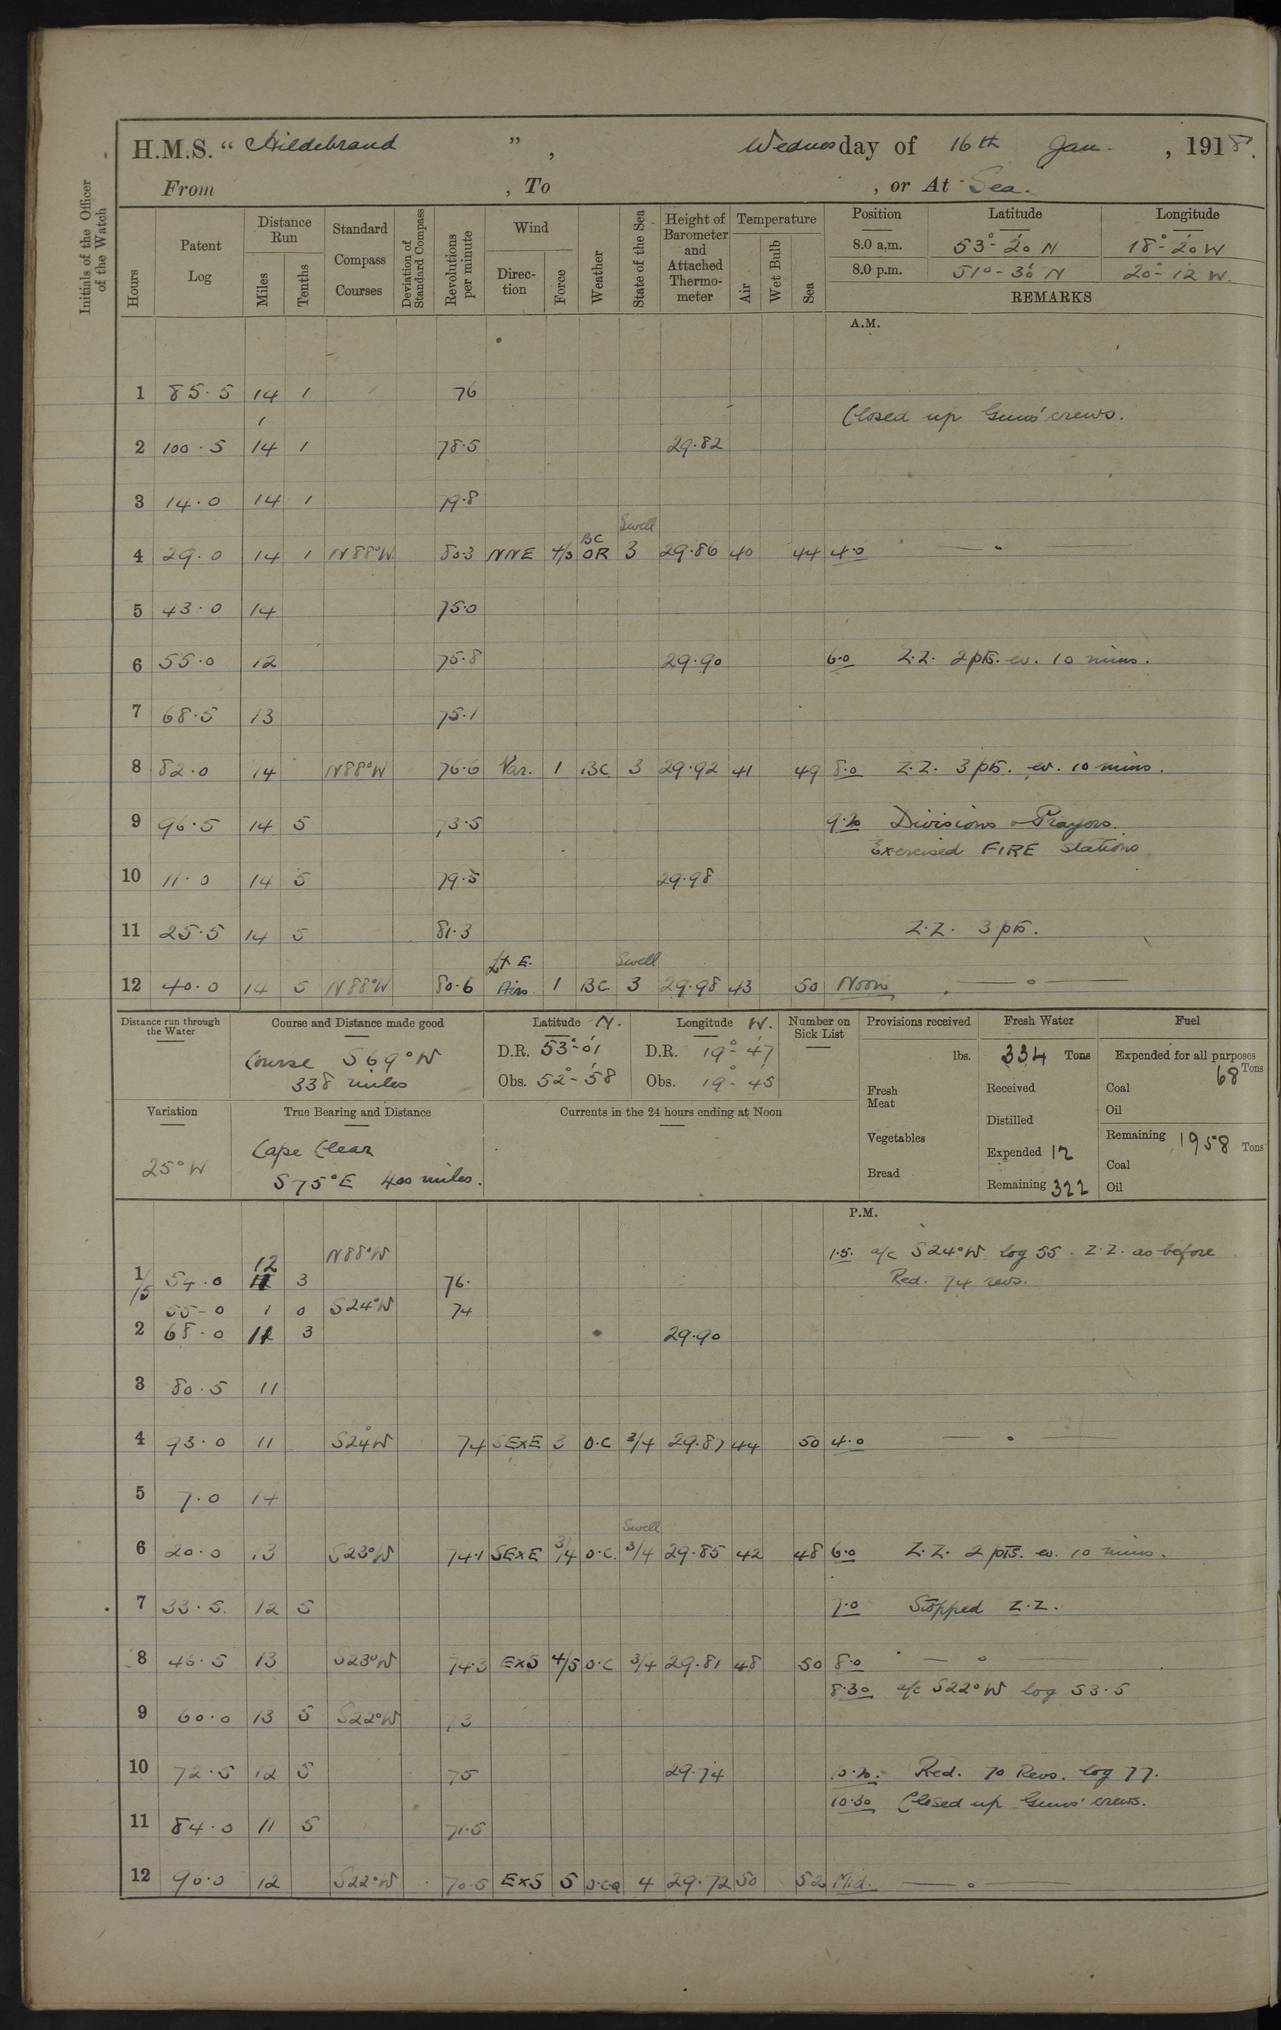 H.M.S. “ Hildebrand ” , Wednesday of 16th Jan. , 1918.
From , To , or At Sea.
Initials of the Officer of the Watch
Hours
Patent Log
Distance Run
Miles
Tenths
Standard Compass Courses
Deviation of Standard Compass
Revolutions per minute
Wind
Direction
Force
Weather
State of the Sea
Height of Barometer and Attached Thermometer
Temperature
Air
Wet Bulb
Sea
Position Latitude Longitude
8.0 a.m. 53°-20' N 18°-20' W
8.0 p.m. 51°-36' N 20°-12' W.
REMARKS
A.M.
1 85.5 14 1 76
Closed up Guns' crews.
2 100.5 14 1 78.5 29.82
3 14.0 14 1 79.8
Swell
BC
4 29.0 14 1 N88°W 80.3 NNE OR 3 29.86 40 44 4.0 — .
5 43.0 14 75.0
6 55.0 12 75.8 29.90 6.0 Z.Z. 2 pts. ev. 10 mins.
7 68.5 13 75.1
8 82.0 14 N88°W 76.6 Var. 1 BC 3 29.92 41 49 8.0 Z.Z. 3 pts. ev. 10 mins.
9 96.5 14 5 73.5 9.20 Divisions & Prayers.
Exercised FIRE Stations
10 11.0 14 5 79.5 29.98
11 25.5 14 5 81.3 Z.Z. 3 pts.
Lt E. Swell
12 40.0 14 5 N88°W 80.6 Airs 1 BC 3 29.98 43 50 Noon — o —
Distance run through the Water
Course and Distance made good
Course S69°W
338 miles
Latitude N.
D.R. 53°-01'
Obs. 52°-58'
Longitude W.
D.R. 19°-47'
Obs. 19°-45'
Number on Sick List
Provisions received
lbs.
Fresh Meat
Vegetables
Bread
Fresh Water
334 Tons
Received
Distilled
Expended 12
Remaining 322
Fuel
Expended for all purposes
68 Tons
Coal
Oil
Remaining 1958 Tons
Coal
Oil
Variation
25°W
True Bearing and Distance
Cape Clear
S75°E 400 miles.
Currents in the 24 hours ending at Noon
P.M.
N88°W 1.5. a/c S24°W log 55. Z.Z. as before
1/5 54.0 12 3 76. Red. 74 revs.
55-0 1 0 S24°W 74
2 68.0 11 3 29.90
3 80.5 11
4 93.0 11 S24°W 74 SExE 3 O.C 3/4 29.87 44 50 4.0 — o —
5 7.0 14
Swell
6 20.0 13 S23°W 74.1 SExE 3/4 O.C. 3/4 29.85 42 48 6.0 Z.Z. 2 pts. ev. 10 mins.
7 33.5. 12 5 7.0 Stopped Z.Z.
8 46.5 13 S23°W 74.3 ExS 4/5 O.C 3/4 29.81 48 50 8.0 — o
8.30 a/c S22°W log 53.5
9 60.0 13 5 S22°W 73
10 72.5 12 5 75 29.74 10.20. Red. 70 Revs. log 77.
10.30 Closed up Guns' crews.
11 84.0 11 5 71.5
12 96.0 12 S22°W 70.5 ExS 5 4 29.72 50 52 Mid. — o —